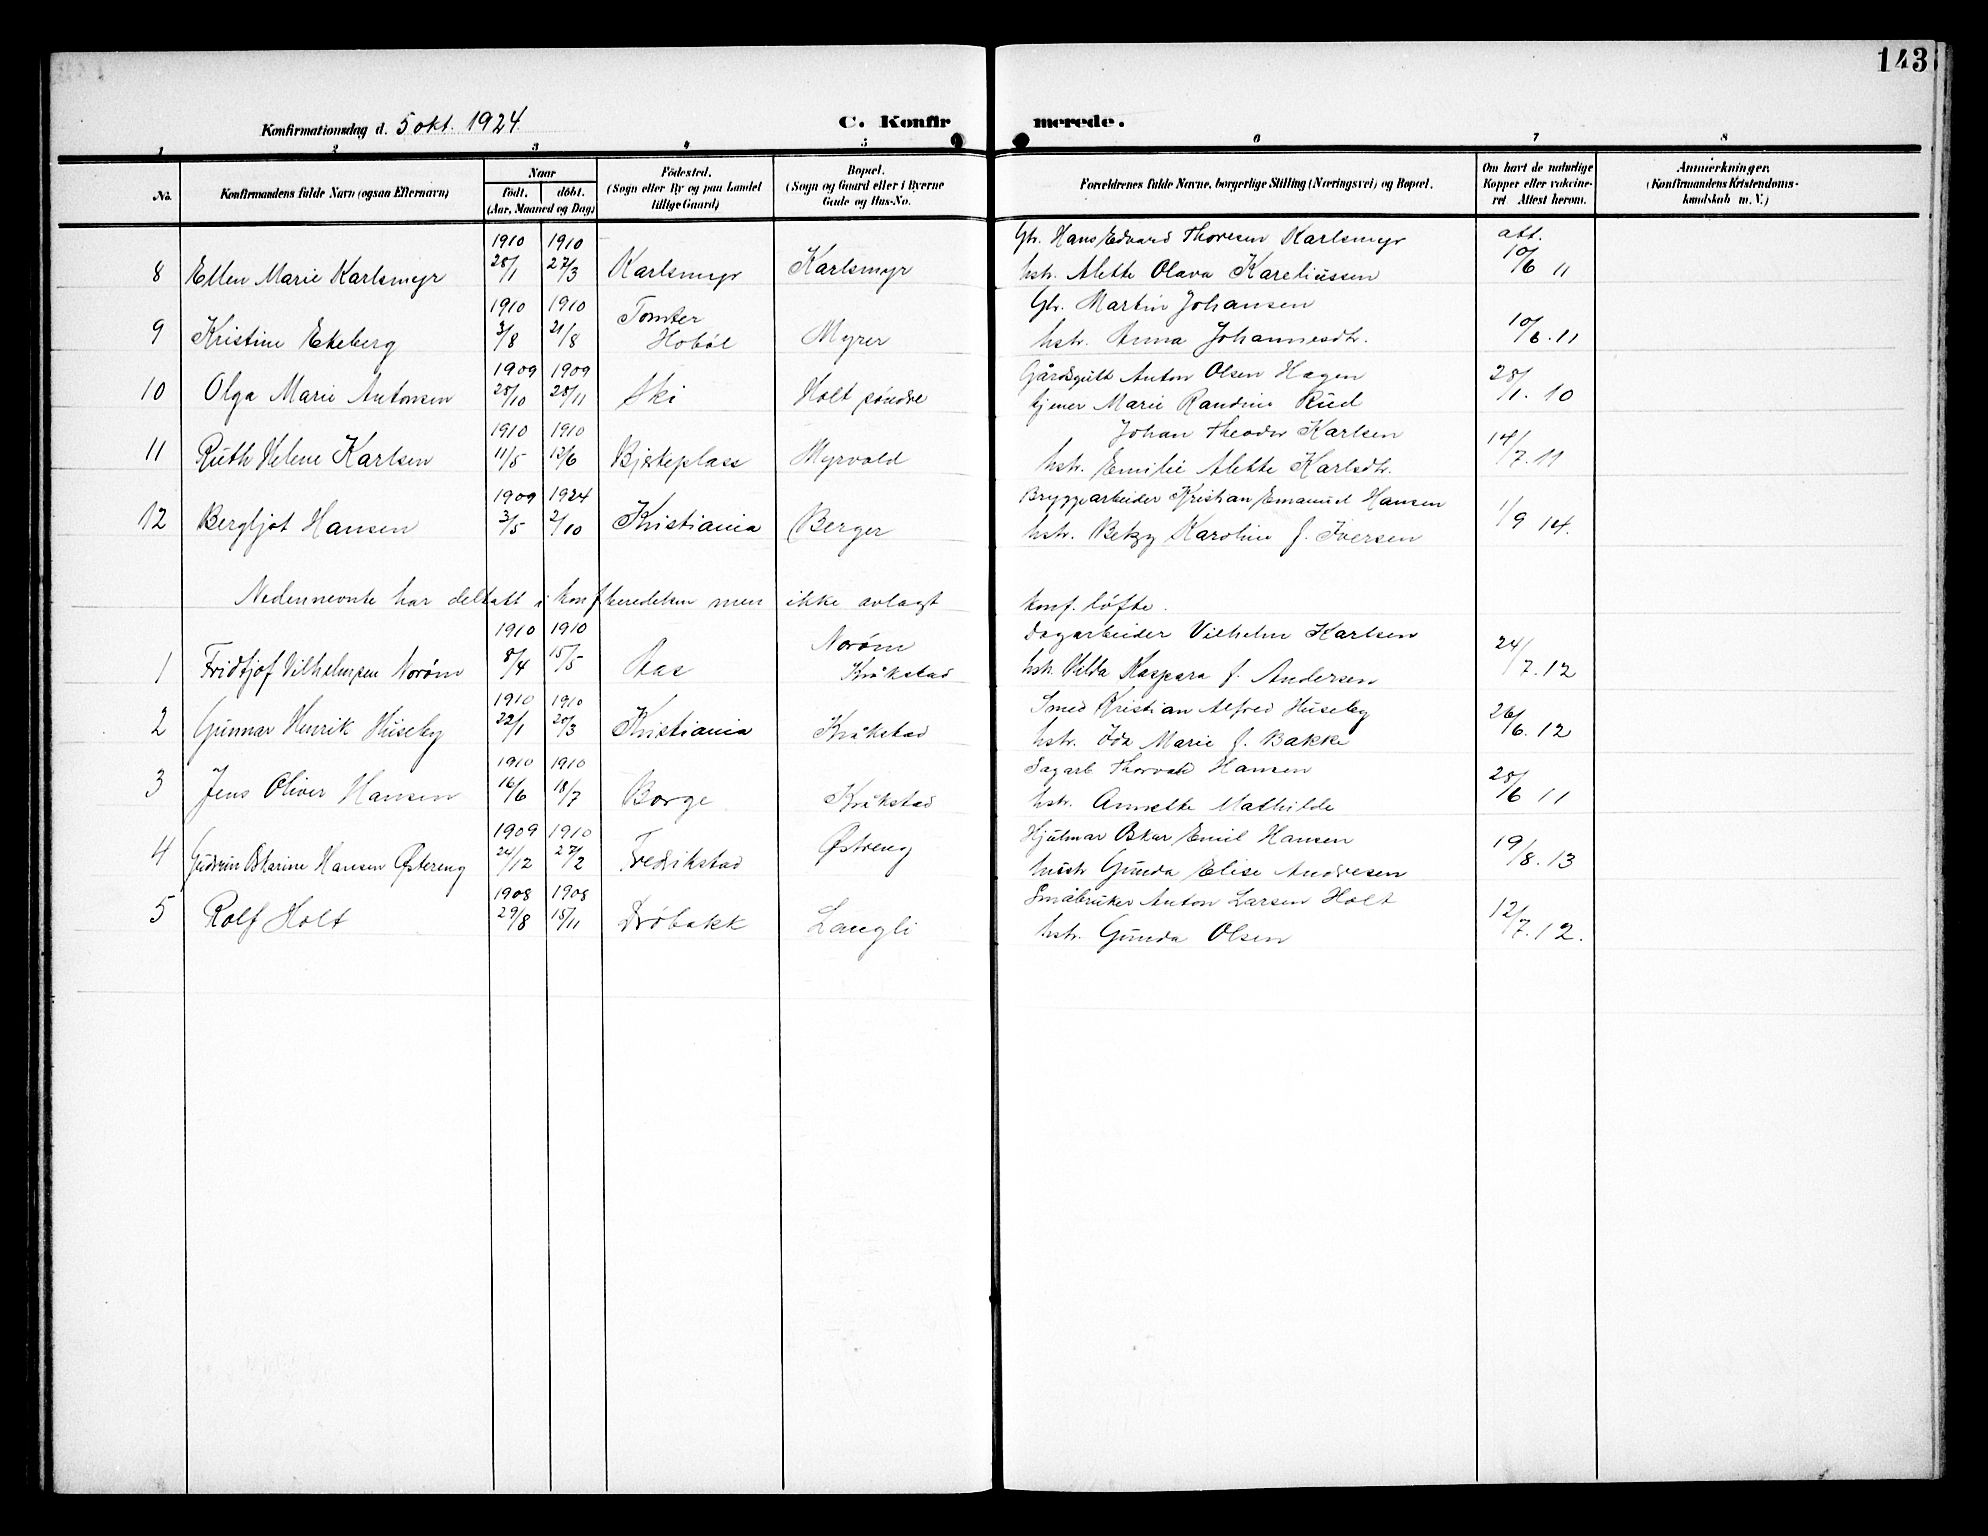 143
Konfirmationsdag d. 5 okt. 1924.
C. Konfirmerede.
1 2 3 4 5 6 7 8
No.
Konfirmandens fulde Navn (ogsaa Efternavn)
Naar
födt. döbt.
(Aar, Maaned og Dag)
Födested.
(Sogn eller By og paa Landet
tillige Gaard)
Bopæl.
(Sogn og Gaard eller i Byerne
Gade og Hus-No.
Forældrenes fulde Navne, borgerlige Stilling (Næringsvei) og Bopæl.
Om havt de naturlige
Kopper eller vakcine-
ret Attest herom.
Anmærkninger.
(Konfirmandens Kristendoms-
kundskab m. V.)
1910 1910 Gbr. Hans Edvard Thoresen Karlsmyr att.
8 Ellen Marie Karlsmyr 28/1 27/3 Karlsmyr Karlsmyr hstr. Alette Olava Kareliussen 10/6 11
1910 1910 Tomter Gbr. Martin Johansen
9 Kristine Ekeberg 3/8 21/8 Hobøl Myrer hstr. Anna Johannesdtr. 10/6. 11
1909 1909 Gårdsgutt Anton Olsen Hagen
10 Olga Marie Antonsen 28/10 28/11 Ski Holt søndre tjener Marie Randine Rud 28/1. 10
1910 1910 Johan Theodor Karlsen
11 Ruth Helene Karlsen 11/5 12/6 Bjerkeplass Myrvold hstr. Emilie Alette Karlsdtr. 14/7. 11
1909 1924 Bryggearbeider Kristian Emanuel Hansen
12 Bergljot Hansen 3/5 2/10 Kristiania Berger hstr. Betzy Karoline f. Iversen 1/9 14.
Nedennevnte har deltatt i konf beredelsen men ikke avlagt konf. løfte.
1910 1910 Norøm Dagarbeider Vilhelm Karlsen
1 Fridtjof Vilhelmsen Norøm 8/4 15/5 Aas Kråkstad hstr. Hilda Kaspara f. Andersen 24/7. 12
1910 1910 Smed Kristian Alfred Huseby
2 Gunnar Henrik Huseby 22/1 20/3 Kristiania Kråkstad hstr. Ida Marie f. Bakke 26/6. 12
1910 1910 Dagarb Thorvald Hansen
3 Jens Oliver Hansen 16/6 18/7 Borge Kråkstad hstr. Annette Mathilde 28/6 11
1909 1910 Hjalmar Oskar Emil Hansen
4 Gudrun Oskarine Hansen Østereng 24/12 27/2 Fredrikstad Østreng hustr Gunda Elise Andresen 19/8. 13
1908 1908 Småbruker Anton Larsen Holt
5 Rolf Holt 29/8 15/11 Drøbakk Langli hstr. Gunda Olsen 12/7. 12.